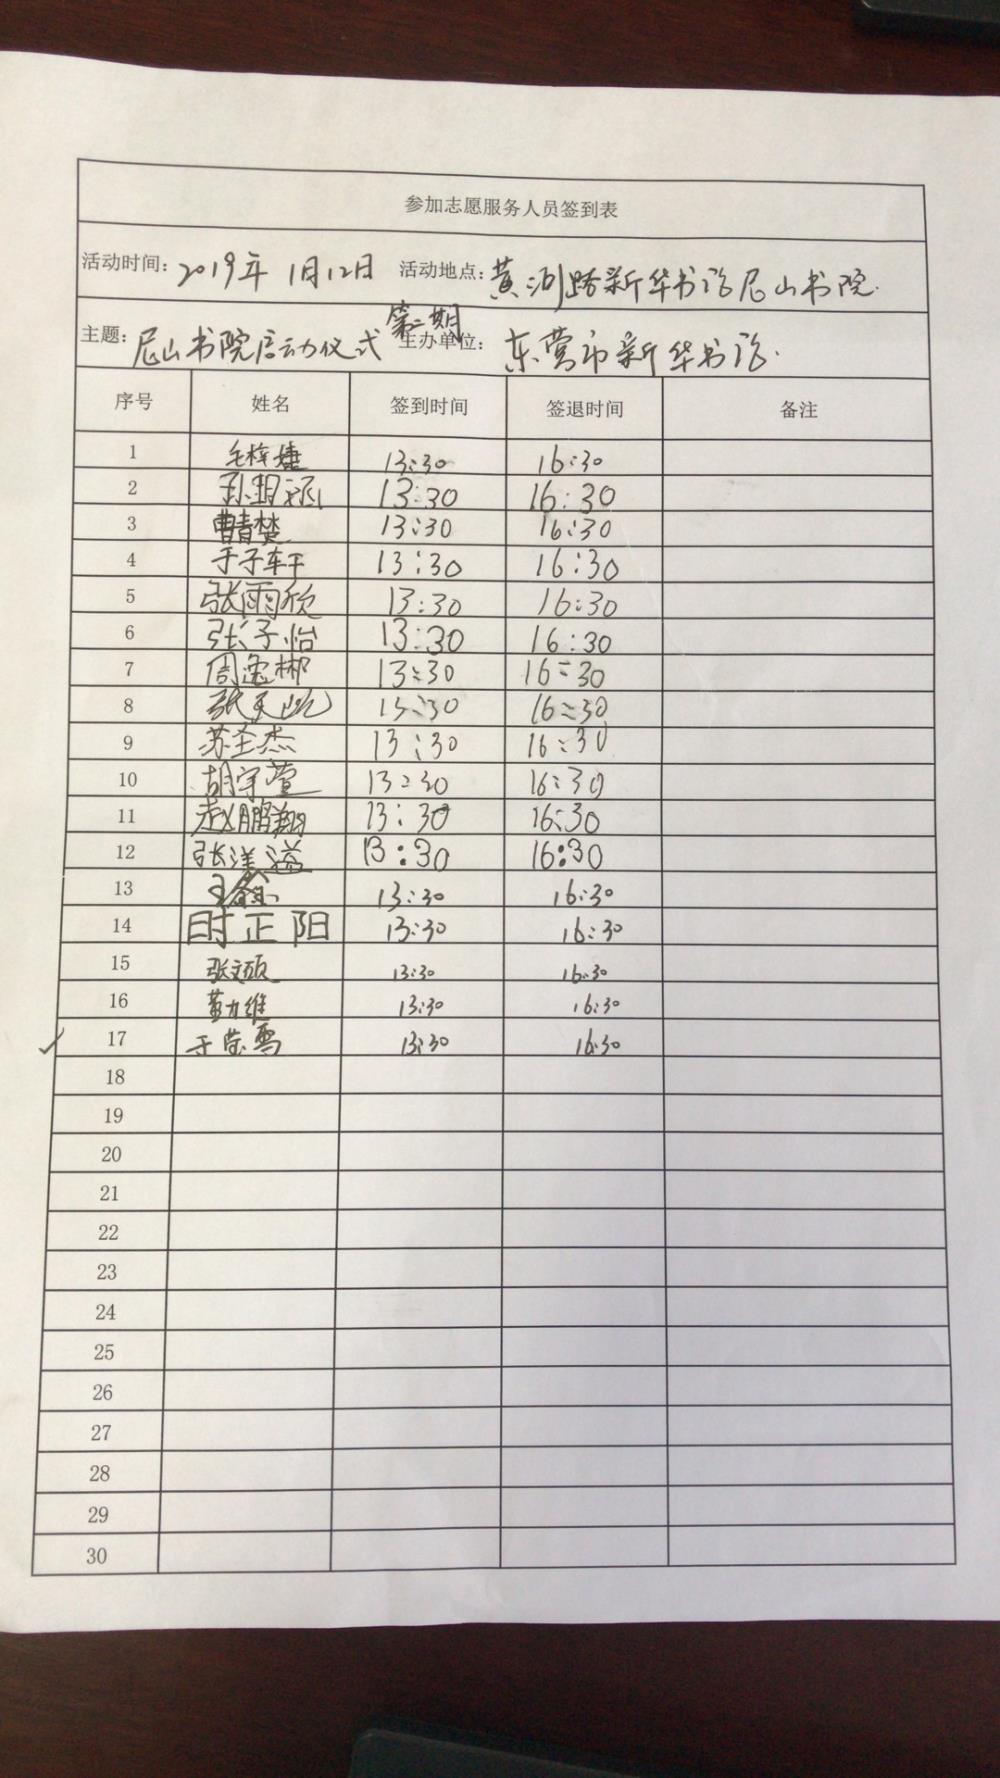 参加志愿服务人员签到表
活动时间: 2019年1月12日 活动地点: 黄河路新华书店尼山书院.
主题: 尼山书院启动仪式第二期 主办单位: 东营市新华书店.
序号 姓名 签到时间 签退时间 备注
1 毛梓婕 13:30 16:30
2 孙玥涵 13:30 16:30
3 曹青楚 13:30 16:30
4 于子轩 13:30 16:30
5 张雨欣 13:30 16:30
6 张子怡 13:30 16:30
7 周逸彬 13:30 16:30
8 张天屹 13:30 16:30
9 苏圣杰 13:30 16:30
10 胡宇萱 13:30 16:30
11 赵鹏翔 13:30 16:30
12 张洋溢 13:30 16:30
13 王鑫 13:30 16:30
14 时正阳 13:30 16:30
15 张文硕 13:30 16:30
16 黄力维 13:30 16:30
17 于莹雪 13:30 16:30
18
19
20
21
22
23
24
25
26
27
28
29
30